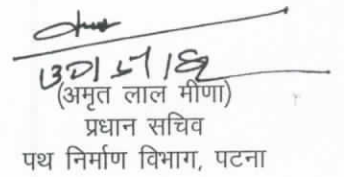 (अमृत लाल मीणा)
प्रधान सचिव
पथ निर्माण विभाग, पटना